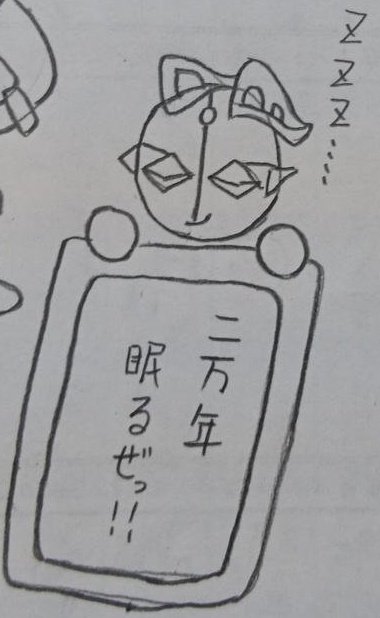 ZZZ……
二万年
眠るぜっ!!